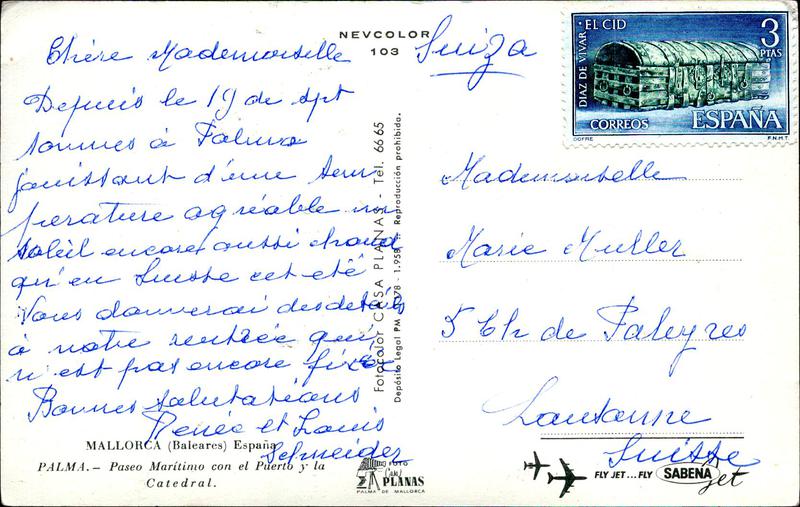 NEVCOLOR
103
Chère Mademoiselle
Depuis le 19 de Spt
sommes à Palma
jouissant d'une tem
pérature agréable un
soleil encore aussi chaud
qu'en Suisse cet été
Vous donnerai des détails
à notre rentrée qui
n'est pas encore fixée
Bonnes salutations
Renée et Louis
Schneider
MALLORCA (Baleares) España
PALMA.- Paseo Marítimo con el Puerto y la
Catedral.
Fotocolor CASA PLANAS - Tel. 6665
Reproducción prohibido.
FOTO
Casa
PLANAS
PALMA DE MALLORCA
Suiza
DIAZ DE VIVAR · EL CID
3
PTAS
CORREOS
ESPAÑA
F.N.M.T.
Mademoiselle
Marie Muller
5 Ch de Paleyres
Lausanne
Suisse
FLY JET...FLY SABENA jet